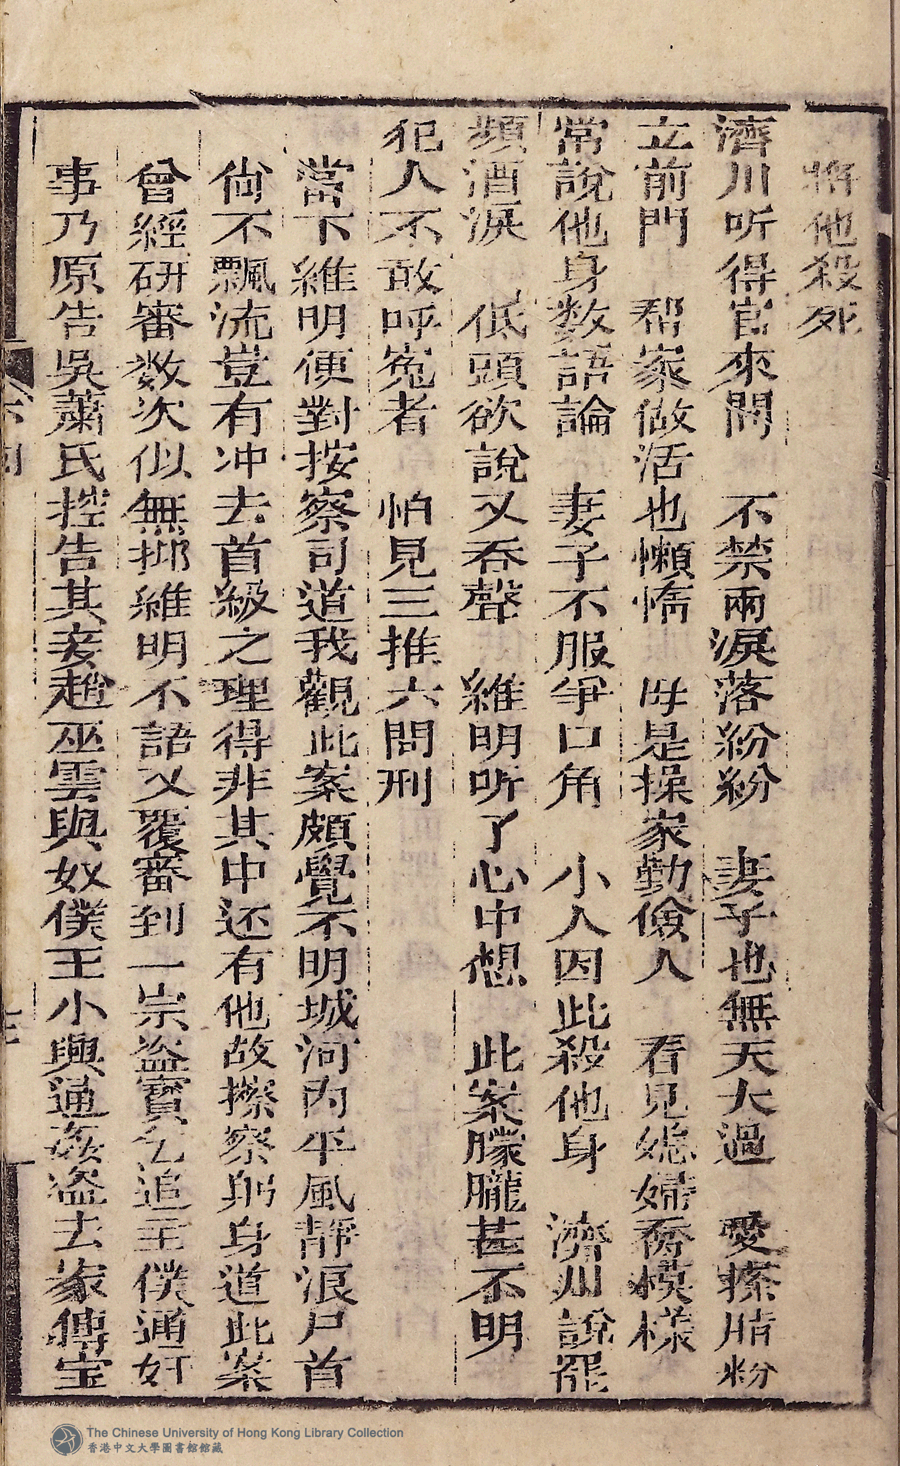 將他殺死
濟川听得官來問　不禁兩淚落紛紛　妻子也無天大過　愛搽脂粉
立前門　帮家做活也懶惰　母是操家勤儉人　看見媳婦喬模樣
常說他身数語論　妻子不服爭口角　小人因此殺他身　濟川說罷
頻洒淚　低頭欲說又吞聲　維明听了心中想　此案朦朧甚不明
犯人不敢呼寃者　怕見三推六問刑
當下維明便對按察司道我觀此案頗覺不明城河內平風靜浪尸首
尙不飄流豈有冲去首級之理得非其中还有他故按察躬身道此案
曾經研審数次似無挪維明不語又覆審到一宗盜寳乞追主僕通奸
事乃原告吳蕭氏控告其妾趙巫雲與奴僕王小興通姦盜去家傳宝
六回
The Chinese University of Hong Kong Library Collection
香港中文大學圖書館館藏